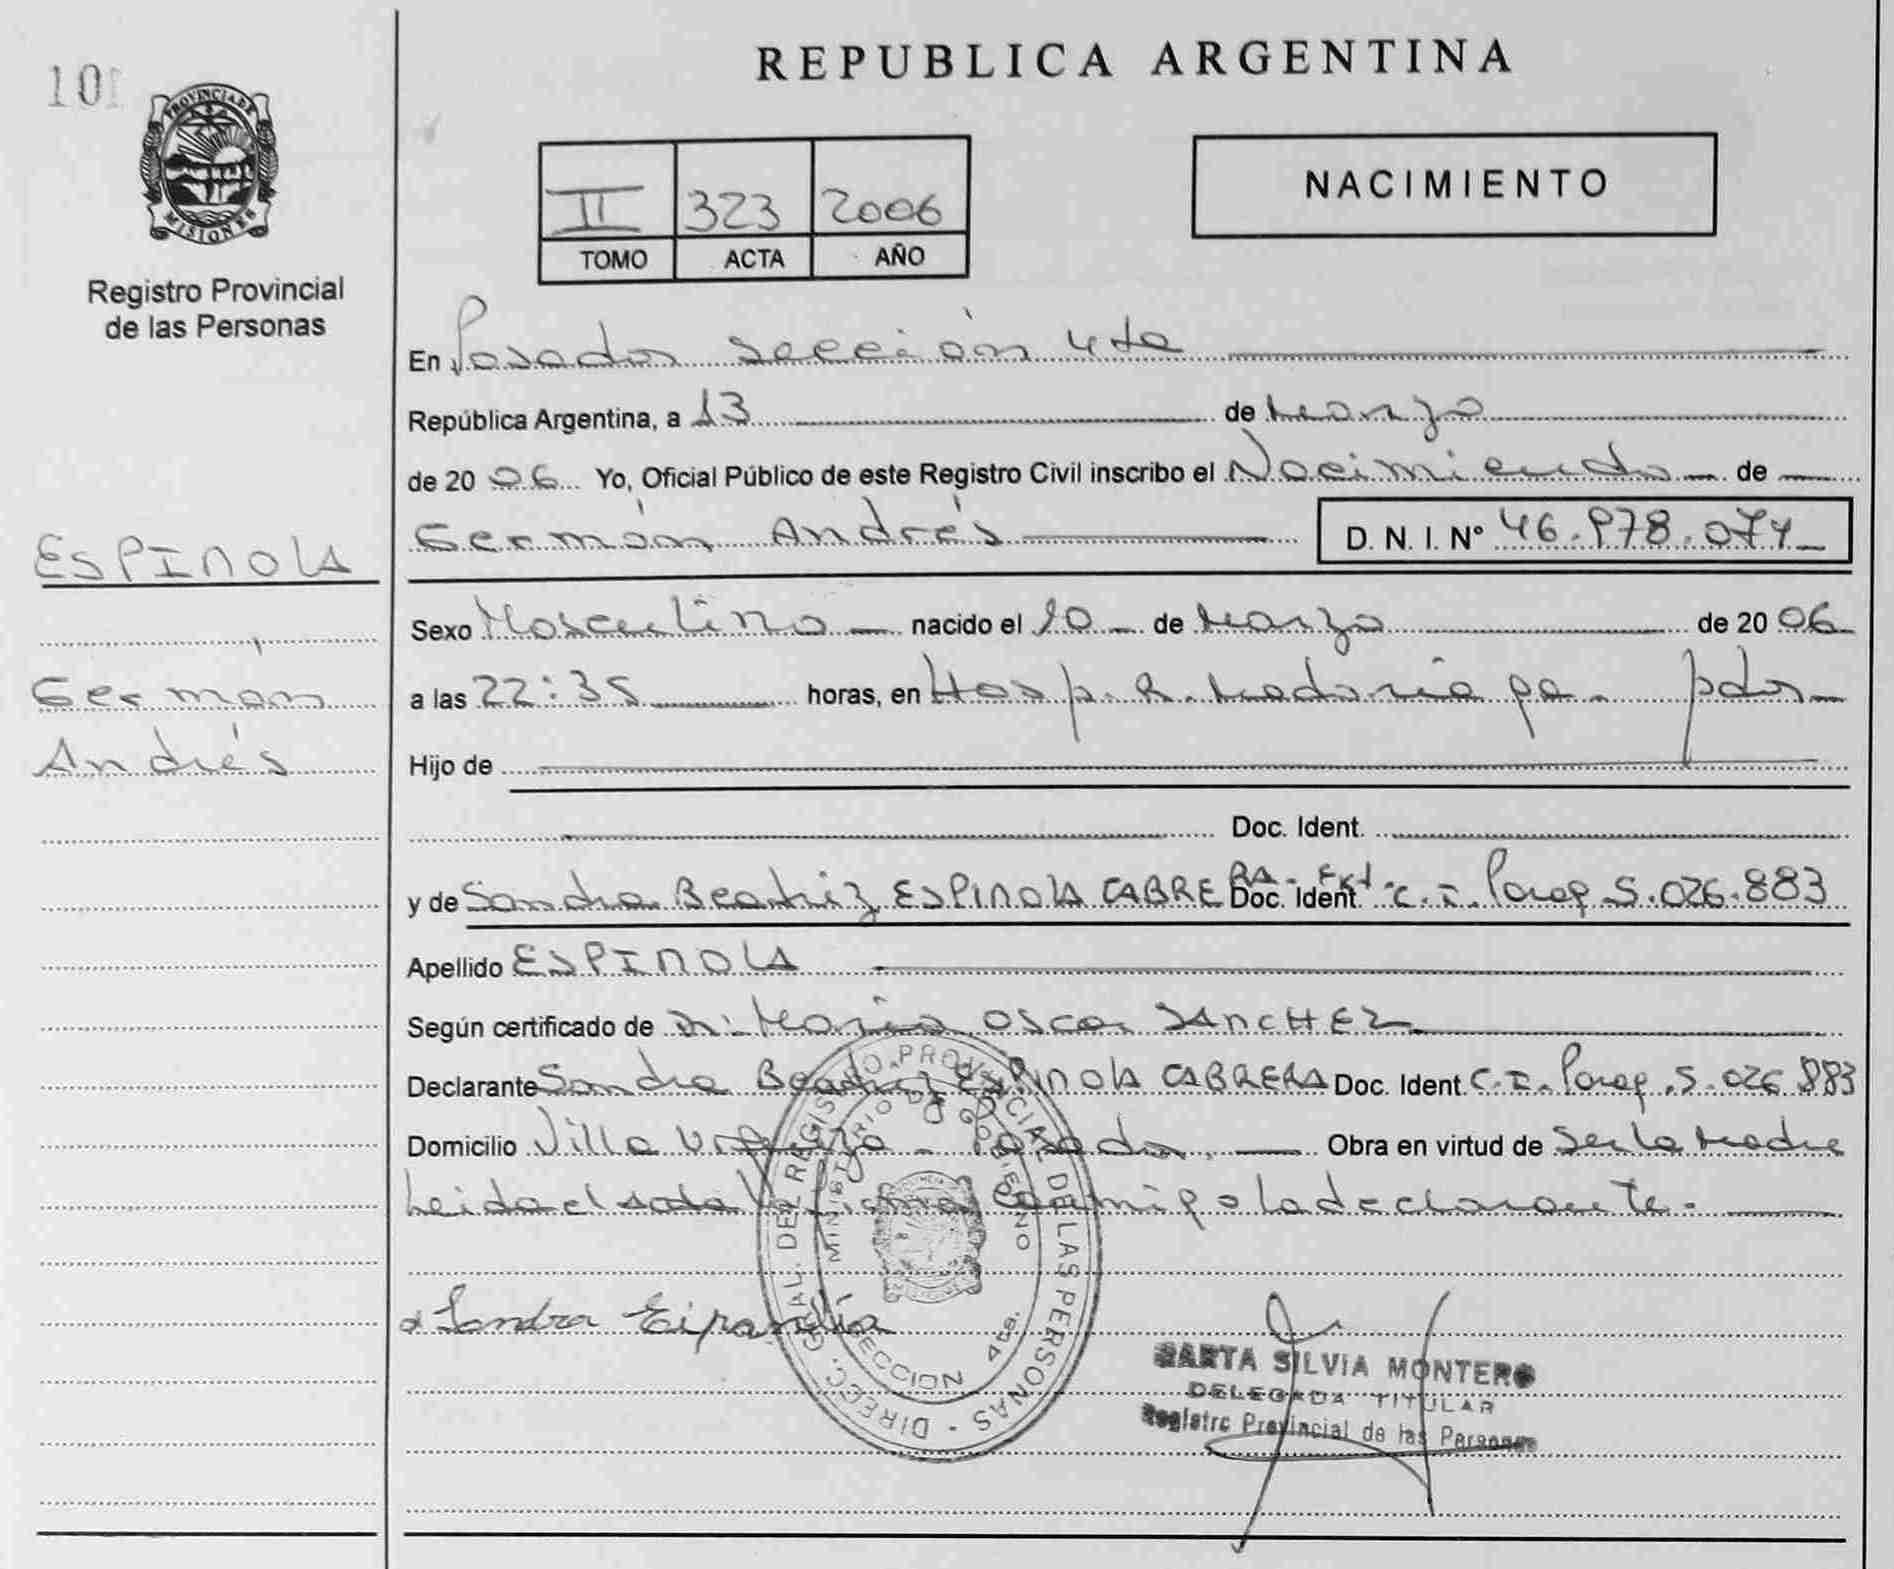 101
REPUBLICA ARGENTINA
PROVINCIA DE
MISIONES
Registro Provincial
de las Personas
II 323 2006
TOMO ACTA AÑO
NACIMIENTO
En Posadas sección 4ta
República Argentina, a 13 de Marzo
de 2006 Yo, Oficial Público de este Registro Civil inscribo el Nacimiento de
Germán Andrés D. N. I. Nº 46.978.074
ESPINOLA
Germán
Andrés
Sexo Masculino nacido el 10 de Marzo de 2006
a las 22:35 horas, en Hosp. R. Madariaga Pdas
Hijo de
Doc. Ident.
y de Sandra Beatriz ESPINOLA CABRERA - Ext. Doc. Ident. C.I. Parag 5.026.883
Apellido ESPINOLA
Según certificado de Dr. Mario Oscar SANCHEZ
Declarante Sandra Beatriz ESPINOLA CABRERA Doc. Ident. C.I. Parag. 5.026.883
Domicilio Villa Urquiza - Posadas. Obra en virtud de Ser la Madre
Leida el acta la firma conmigo la declarante.
Sandra Espinola
DIREC. GRAL. DEL REGISTRO PROVINCIAL DE LAS PERSONAS -
MINISTERIO DE GOBIERNO
SECCION 4ta.
MARTA SILVIA MONTERO
DELEGADA TITULAR
Registro Provincial de las Personas